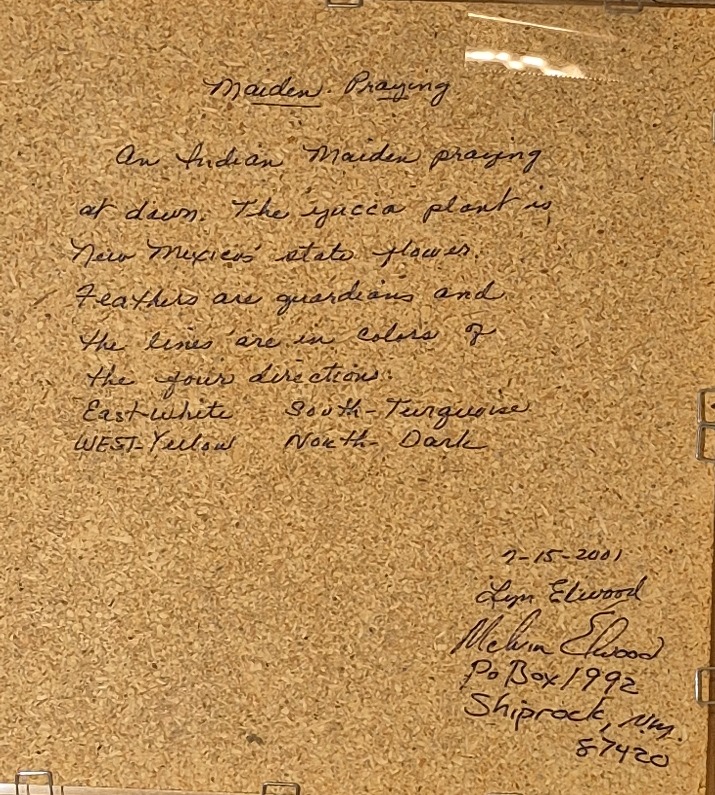 Maiden Praying
An Indian Maiden praying
at dawn. The yucca plant is
New Mexicos' state flower.
Feathers are guardians and
the lines are in colors of
the four directions.
East-White South-Turquoise
WEST-Yellow North-Dark
7-15-2001
Lyn Elwood
Melvin Elwood
Po Box 1992
Shiprock, N.M.
87420